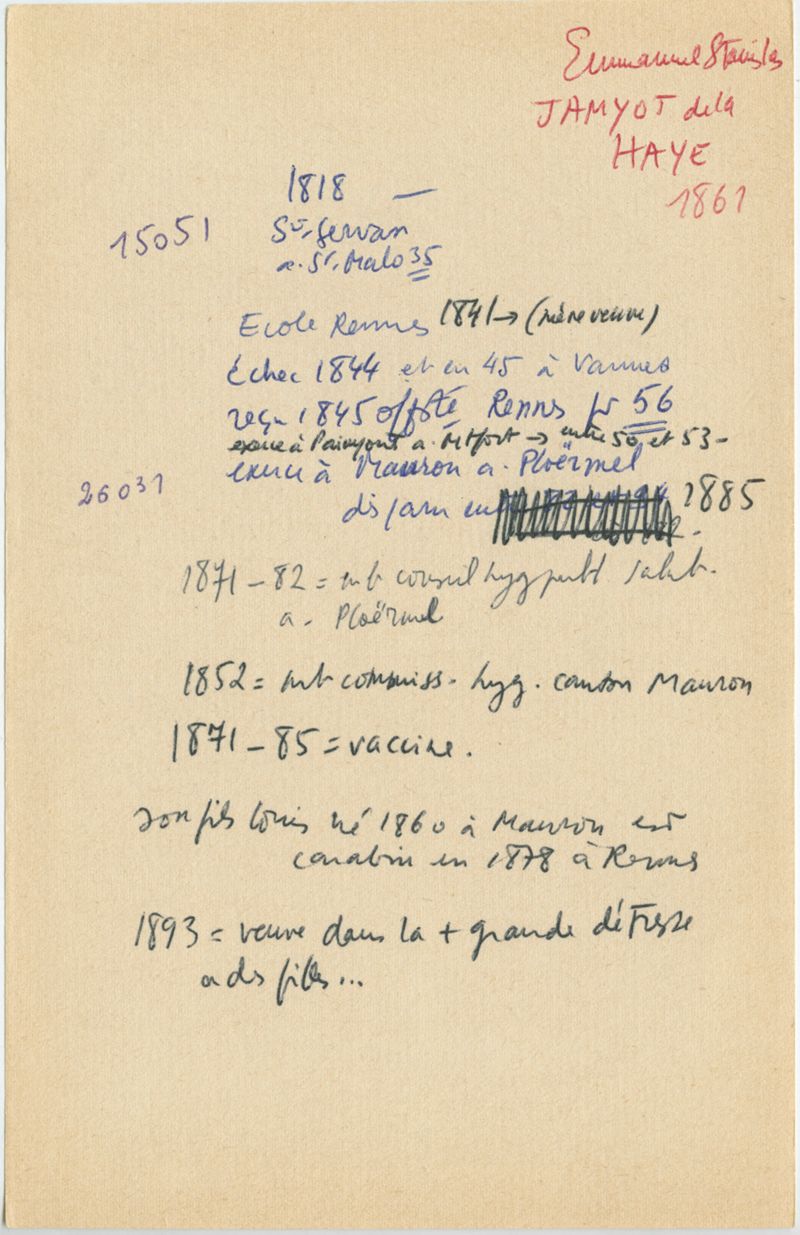 Emmanuel Stanislas
JAMYOT de la
HAYE
1861
1818 —
15051
St-Servan
a. St. Malo 35
Ecole Rennes 1841 → (mère veuve)
échec 1844 et en 45 à Vannes
reçu 1845 offté Rennes pr 56
exerce à Paimpont a. Mtfort → entre 50 et 53 -
exerce à Mauron a. Ploërmel
26031
disparu en 1885
1871 - 82 = mb conseil hyg publ salub.
a. Ploërmel
1852 = mb commiss. hyg. canton Mauron
1871 - 85 = vaccine.
son fils Louis né 1860 à Mauron est
carabin en 1878 à Rennes
1893 = veuve dans la + grande détresse
a des filles...